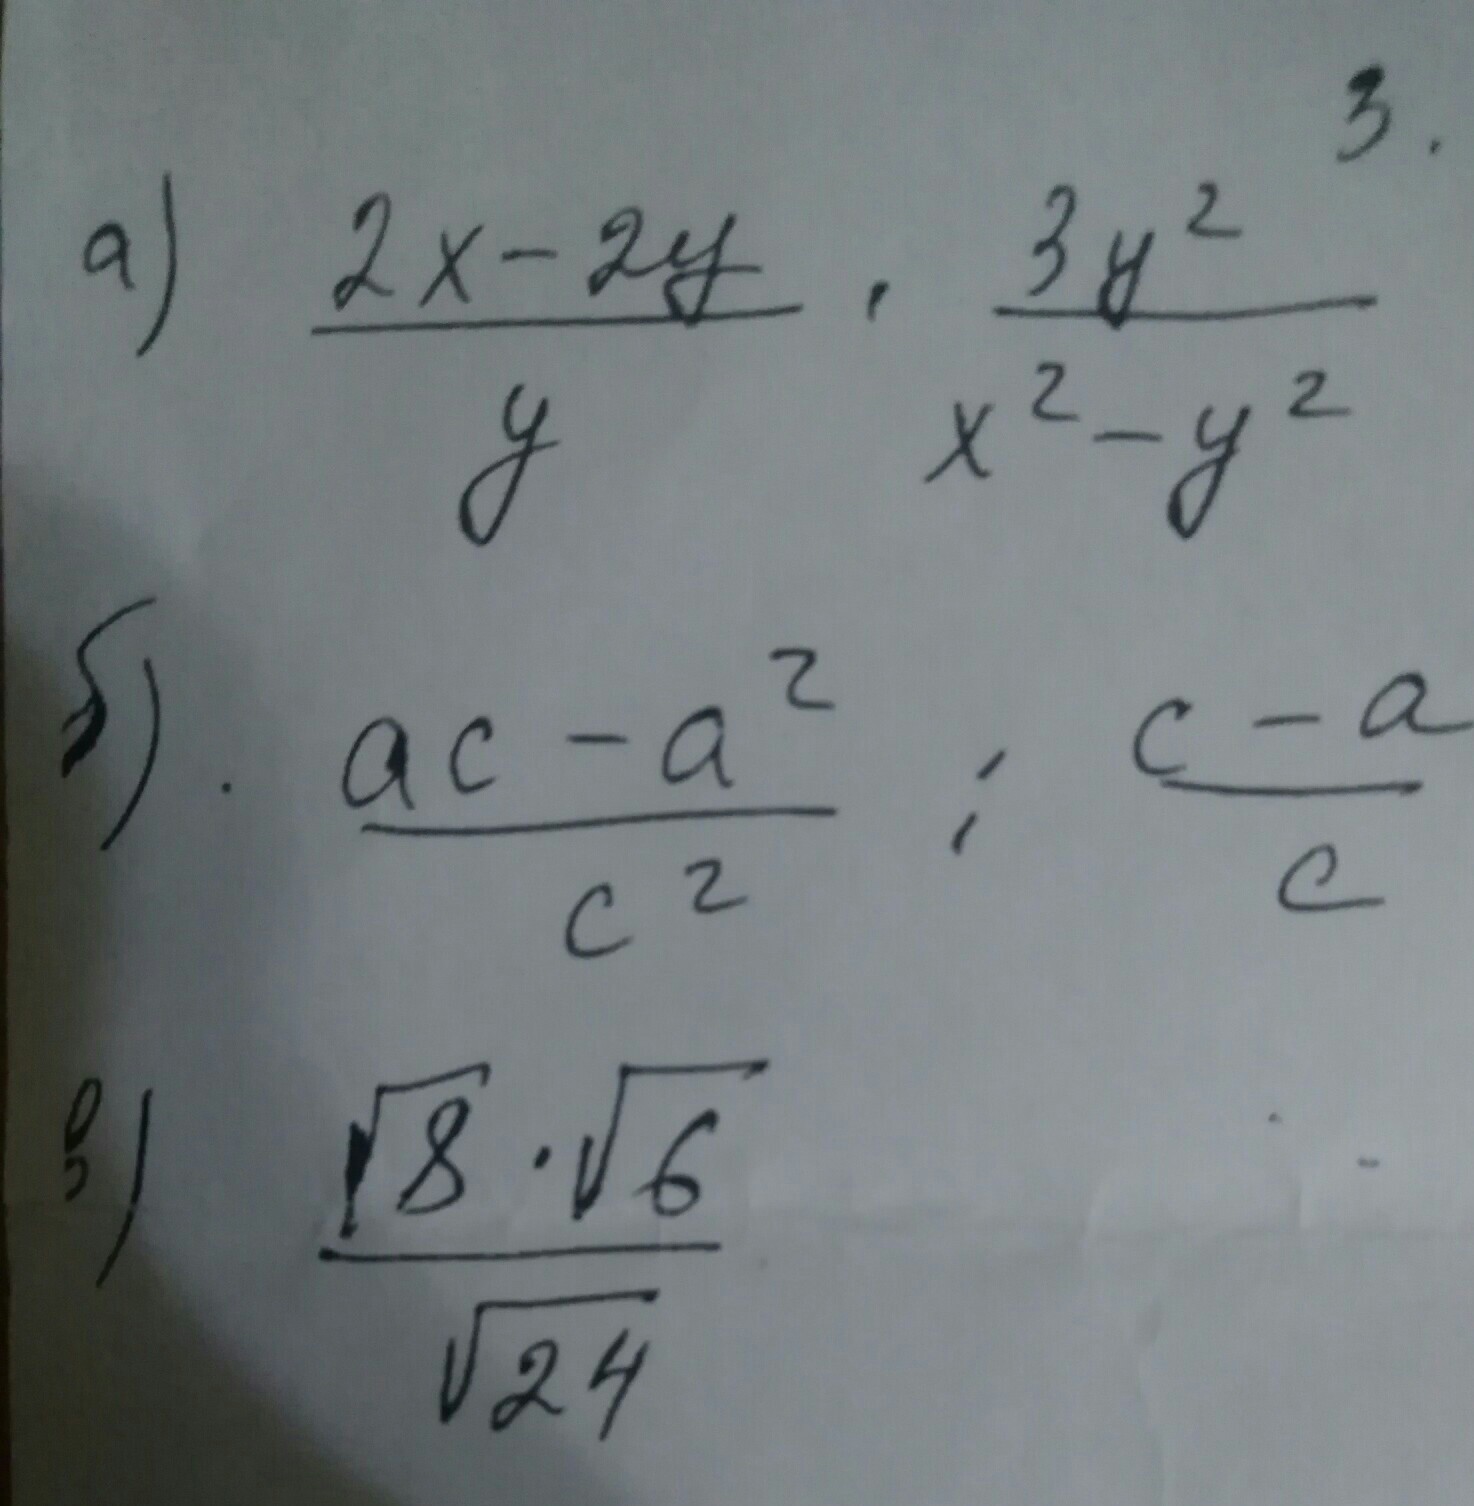 3.
а) (2x - 2y)/y · 3y²/(x² - y²)
б). (ac - a²)/c² : (c - a)/c
в) (√8 · √6)/√24